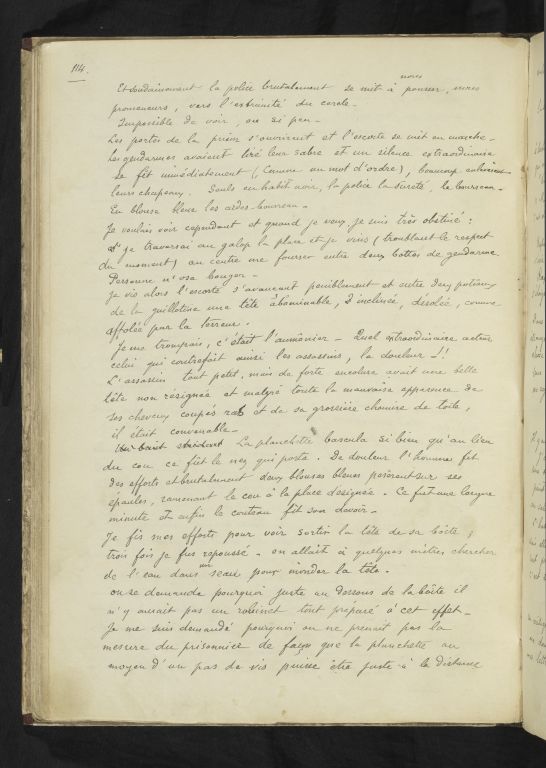 114.
Et soudainement la police brutalement se mit à pousser, nous
promeneurs, vers l'extrémité du cercle.
Impossible de voir, ou si peu -
Les portes de la prison s'ouvrirent et l'escorte se mit en marche -
les gendarmes avaient tiré leur sabre et un silence extraordinaire
se fit immédiatement (comme un mot d'ordre), beaucoup enlevèrent
leurs chapeaux. Seuls en habit noir, la police la sûreté, le bourreau -
En blouse bleue les aides-bourreau -
Je voulais voir cependant et quand je veux je suis très obstiné :
et je traversai au galop la place et je vins (troublant le respect
du moment) au centre me fourrer entre deux bottes de gendarme.
Personne n'osa bouger -
Je vis alors l'escorte s'avançant péniblement et entre deux poteaux
de la guillotine une tête abominable, inclinée, désolée, comme
affolée par la terreur.
Je me trompais, c'était l'aumônier - Quel extraordinaire acteur
celui qui contrefait ainsi les assassins, la douleur !!
L'assassin tout petit, mais de forte encolure avait une belle
tête non résignée et malgré toute la mauvaise apparence de
ses cheveux coupés ras et de sa grossière chemise de toile,
il était convenable -
Un bruit strident La planchette bascula si bien qu'au lieu
du cou ce fût le nez qui porta. De douleur l'homme fit
des efforts et brutalement deux blouses bleues pesèrent sur ses
épaules, ramenant le cou à la place designée - Ce fut une longue
minute et enfin le couteau fit son devoir -
Je fis mes efforts pour voir sortir la tête de sa boîte ;
trois fois je fus repoussé - on allait à quelques mètres chercher
de l'eau dans un seau pour inonder la tête -
on se demande pourquoi juste au dessous de la boîte il
n'y aurait pas un robinet tout preparé à cet effet -
Je me suis demandé pourquoi on ne prenait pas la
mesure du prisonnier de façon que la planchette au
moyen d'un pas de vis puisse être juste à la distance